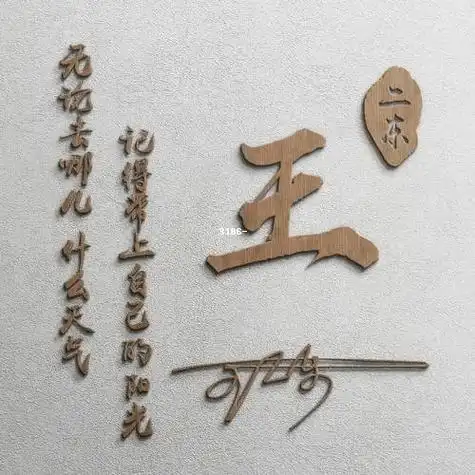 无论去哪儿 什么天气
记得带上自己的阳光
王
二东
3186-